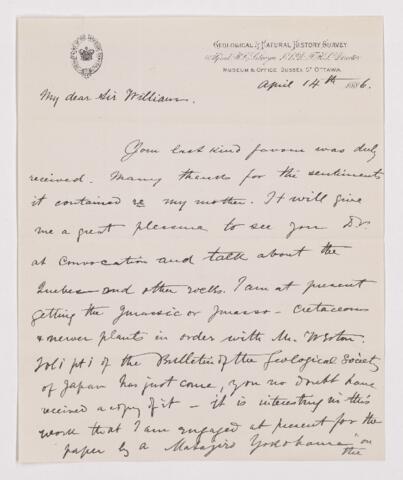 GEOLOGICAL & NATURAL HISTORY SURVEY
Alfred R. C. Selwyn, L.L.D., F.R.S., Director
MUSEUM & OFFICE, SUSSEX ST. OTTAWA.
April 14th 1886.
My dear Sir William.
Your last kind favour was duly
received. Many thanks for the sentiments
it contained re my mother. It will give
me a great pleasure to see you D.V.
at Convocation and talk about the
Quebec and other rocks. I am at present
getting the Jurassic or Jurasso-Cretaceous
& newer plants in order with Mr. Weston.
Vol i pt i of the Bulletin of the Geological Society
of Japan has just come, you no doubt have
received a copy of it – it is interesting in this
work that I am engaged at present for the
paper by a Matajiro Yokohama "on
the